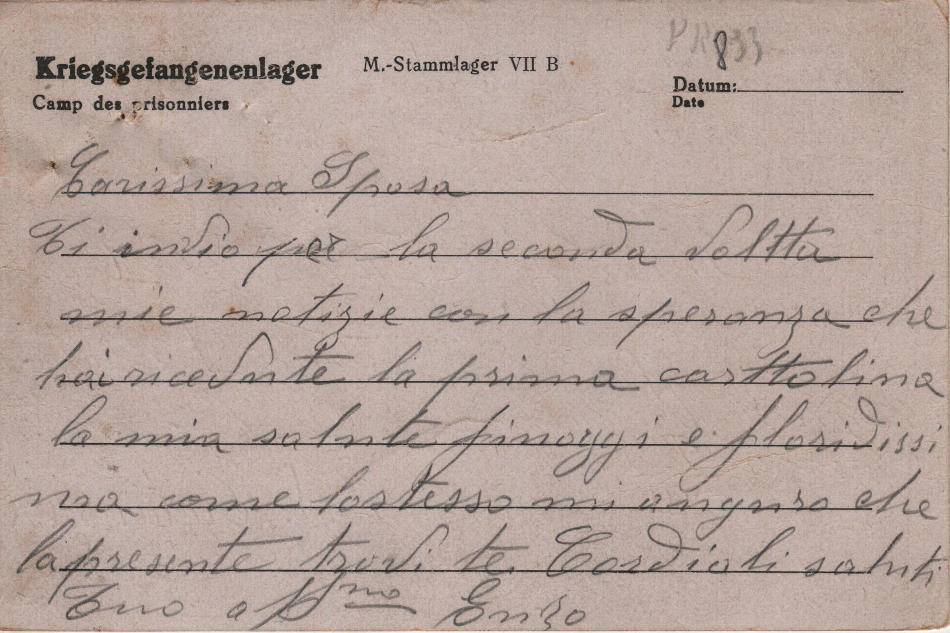 PR 833
Kriegsgefangenenlager M.-Stammlager VII B
Camp des prisonniers
Datum:
Date
Carissima Sposa
Ti invio per la seconda voltta
mie notizie con la speranza che
hai ricevute la prima carttolina
la mia salute finoggi e floridissi
ma come lostesso mi anguro che
lapresente trovi te. Cordiali saluti
Tuo aff.mo Enzo